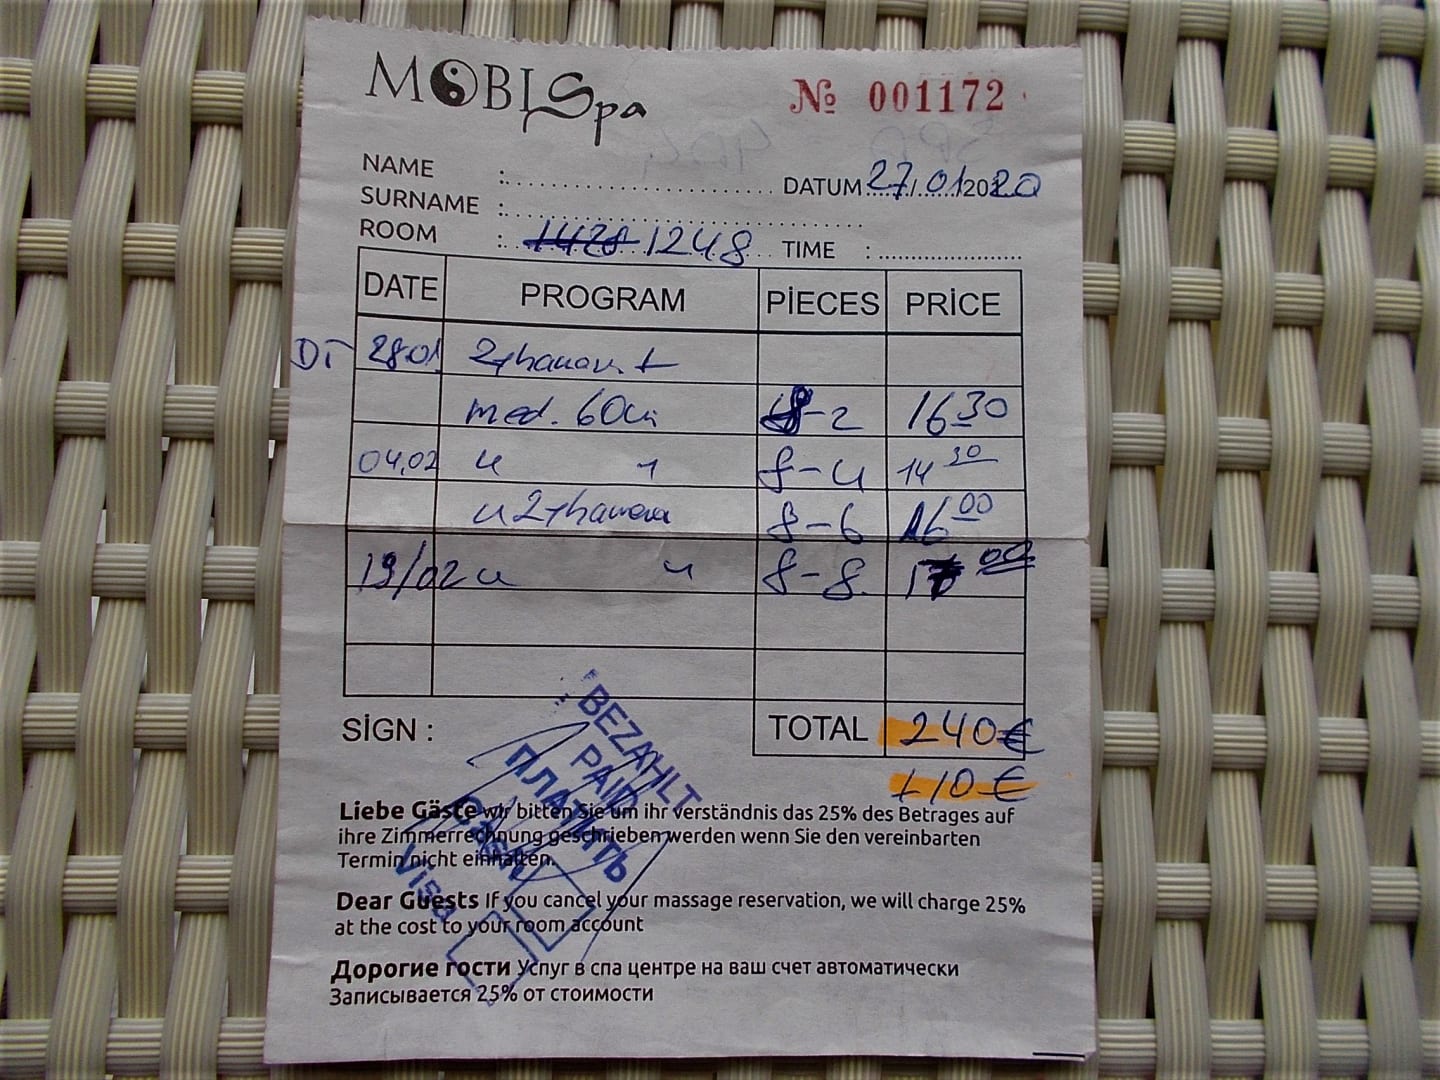 MOBI Spa
№ 001172
NAME :
DATUM 27/01/2020
SURNAME :
ROOM : 1428 1248 TIME :
DATE PROGRAM PİECES PRİCE
DT 28.01
med. 60 -2 16 30
04,02 8-4 14 30
8-6 16 00
19/02 8-8 17 00
SİGN :
TOTAL 240€
+10€
BEZAHLT
PAID
ПЛАТИТЬ
Cash
Visa
Liebe Gäste wir bitten Sie um ihr verständnis das 25% des Betrages auf
ihre Zimmerrechnung geschrieben werden wenn Sie den vereinbarten
Termin nicht einhalten.
Dear Guests If you cancel your massage reservation, we will charge 25%
at the cost to your room account
Дорогие гости Услуг в спа центре на ваш счет автоматически
Записывается 25% от стоимости